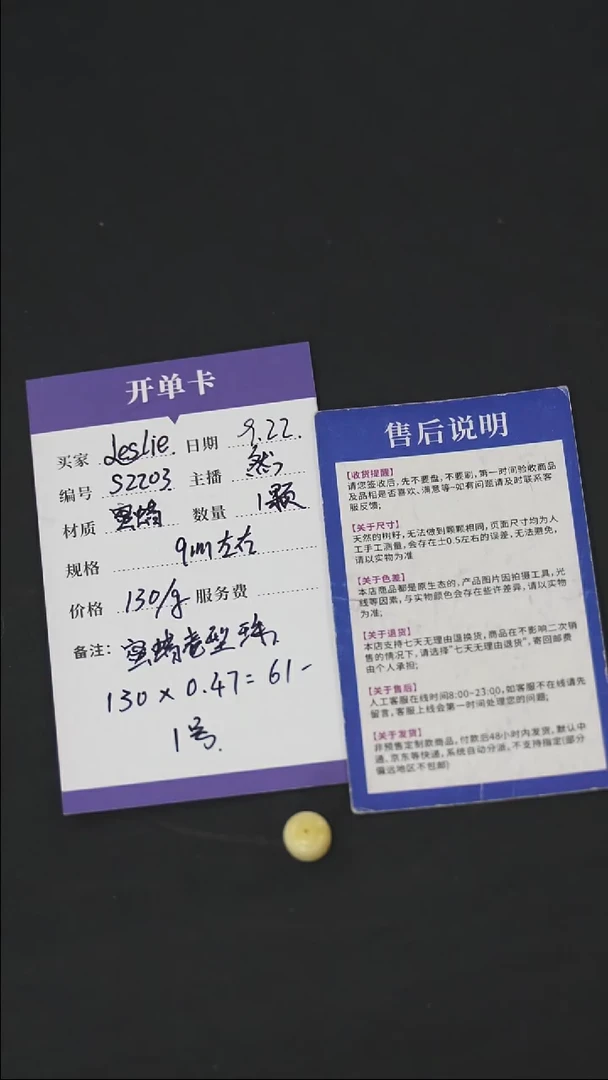 开单卡
买家 Leslie. 日期 9.22.
编号 S2203 主播 然
材质 蜜蜡 数量 1颗
规格 9m左右
价格 130/g 服务费
备注: 蜜蜡老型珠
130 × 0.47 = 61-
1号.
售后说明
【收货提醒】
请您签收后,先不要盘,不要刷,第一时间验收商品
及品相是否喜欢、满意等~如有问题请及时联系客
服反馈;
【关于尺寸】
天然的树籽,无法做到颗颗相同,页面尺寸均为人
工手工测量,会存在±0.5左右的误差,无法避免,
请以实物为准
【关于色差】
本店商品都是原生态的,产品图片因拍摄工具,光
线等因素,与实物颜色会存在些许差异,请以实物
为准;
【关于退货】
本店支持七天无理由退换货,商品在不影响二次销
售的情况下,请选择"七天无理由退货",寄回邮费
由个人承担;
【关于售后】
人工客服在线时间8:00~23:00,如客服不在线请先
留言,客服上线会第一时间处理您的问题;
【关于发货】
非预售定制款商品,付款后48小时内发货,默认中
通、京东等快递,系统自动分派,不支持指定(部分
偏远地区不包邮)